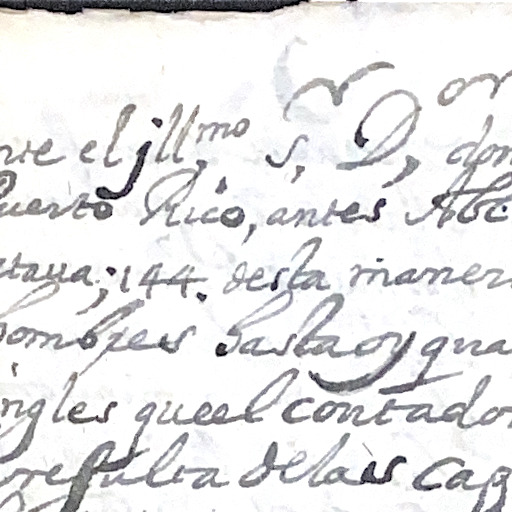 el jll,mo s,r D,or don
Puerto Rico, antes Abc
ctaua; 144. desta maner
hombres hasta oy qua
ingles queel contador
resulta delas cap